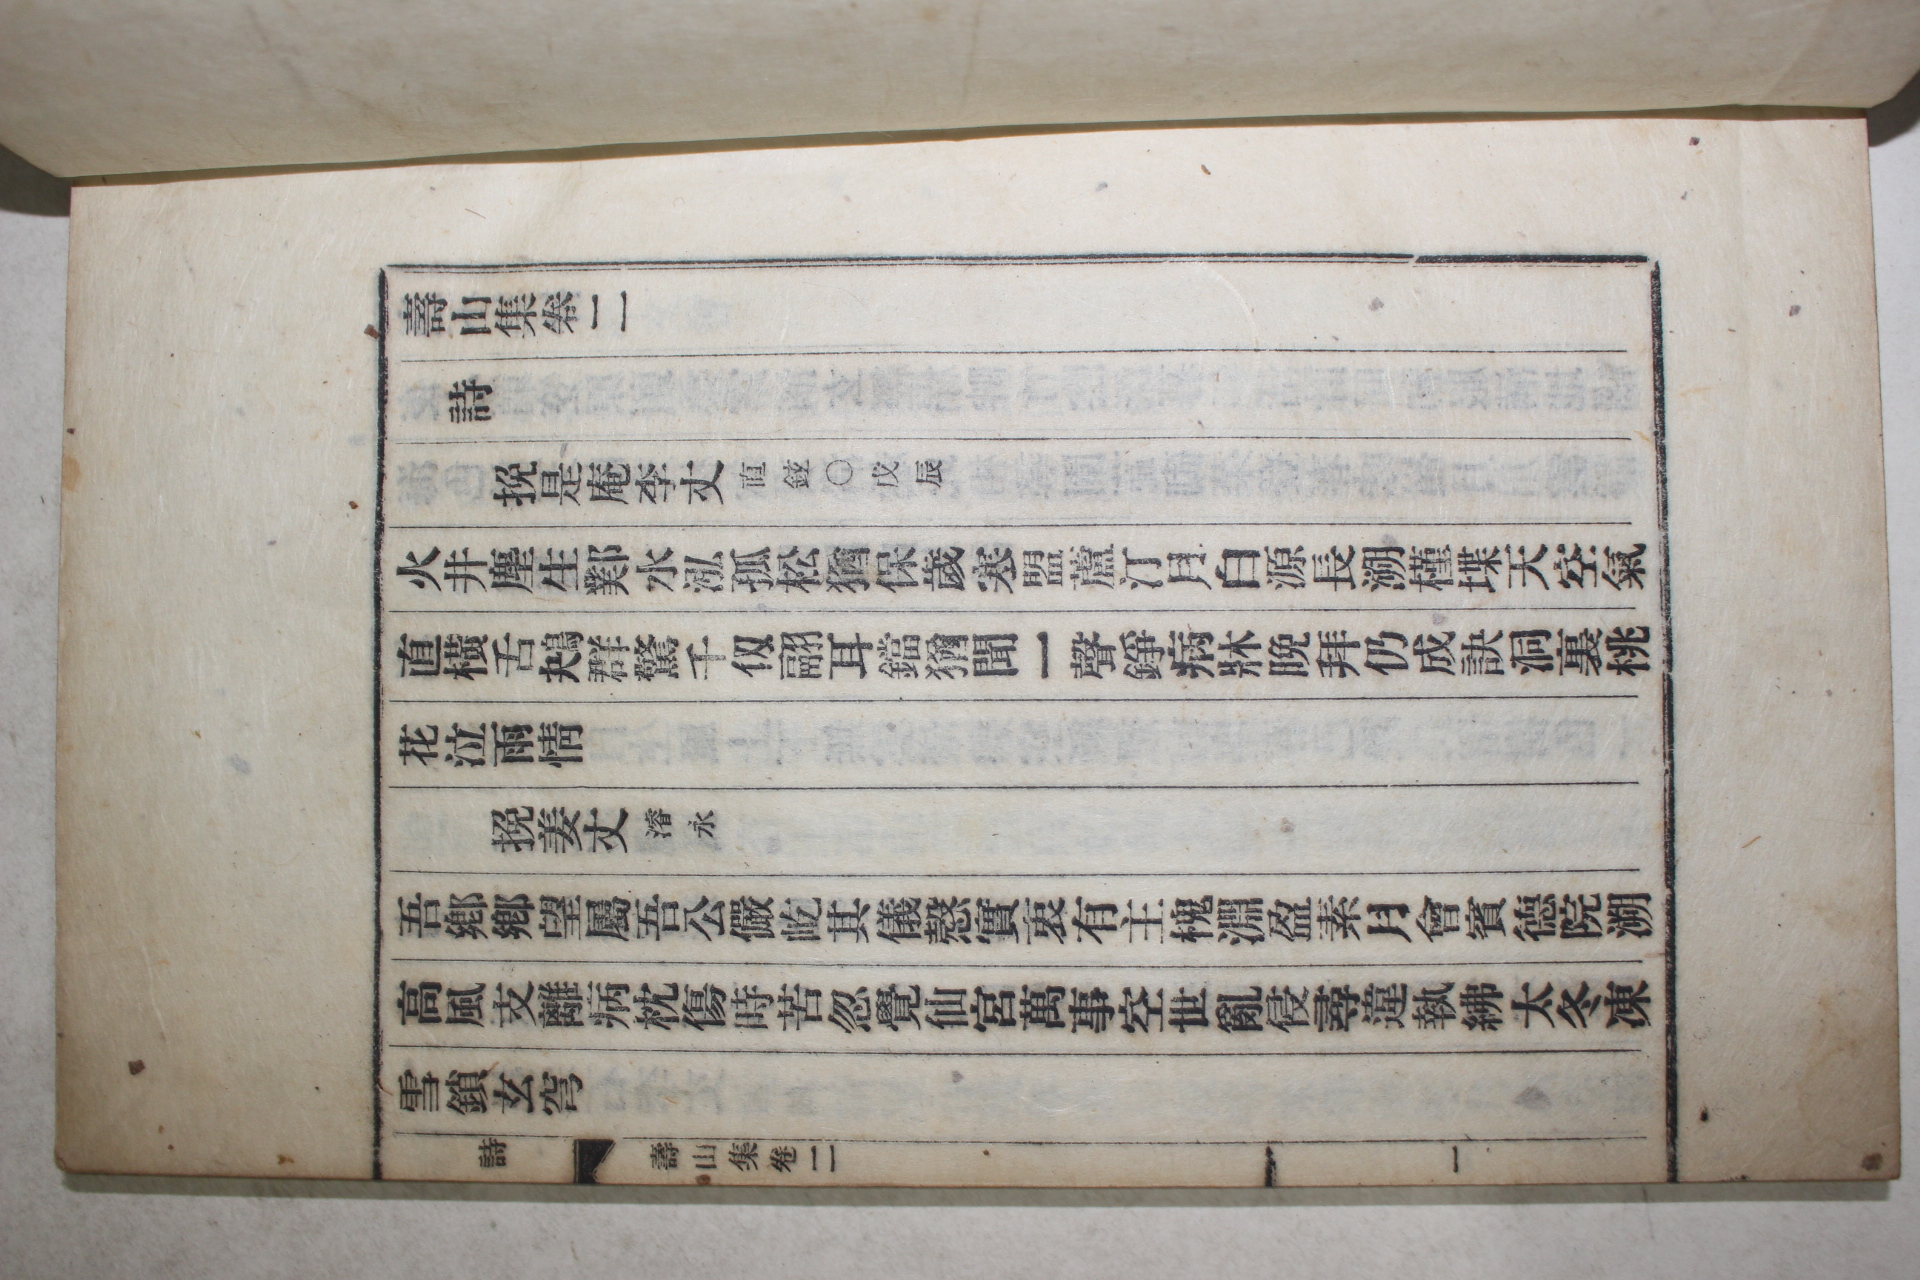 壽山集卷二
詩
挽是庵李丈 直鉉○戊辰
火井塵生鄴水泓孤松猶保歲寒盟蘆汀月白源長溯槿堞天空氣
直橫舌鴂群驚千仭翮耳鐺猶聞一聲錚病牀晚拜仍成訣洞裏桃
花泣雨情
挽姜丈 濬永
吾鄉鄉望屬吾公儼屹其儀慤實衷有主槐淵盈素月會賓德院溯
高風支離病枕傷時苦忽覺仙宮萬事空世亂侵尋違執紼太冬凍
雪鎖玄穹
詩
壽山集卷二
一